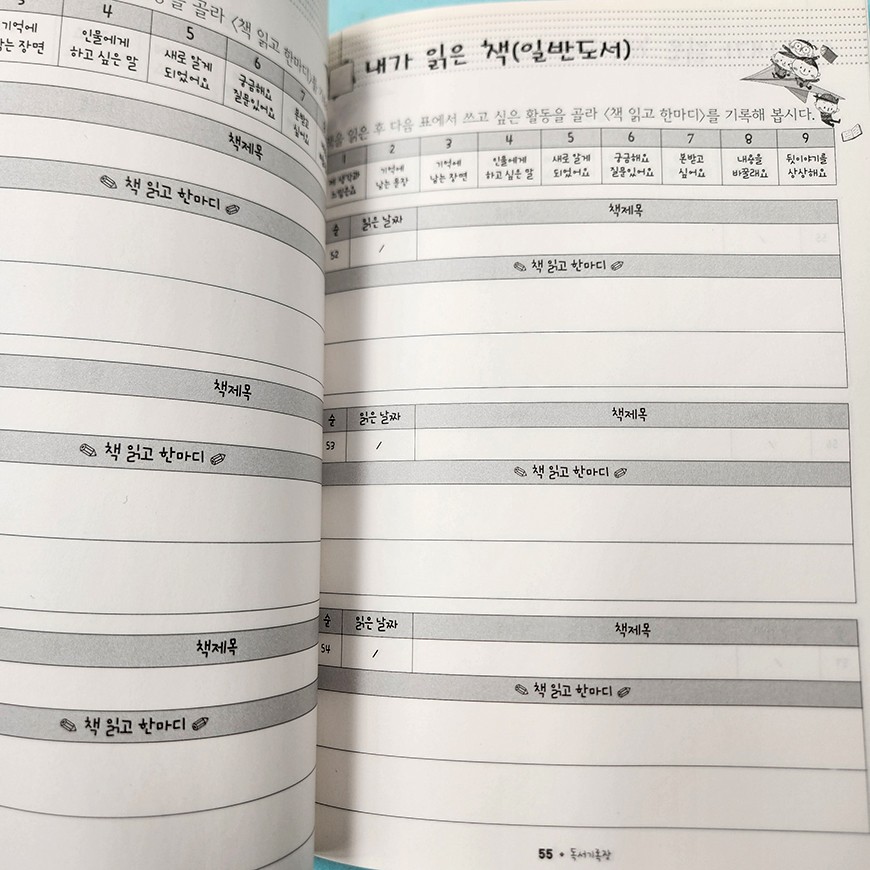 골라 〈책 읽고 한마디〉
4 5 6 7
기억에
남는 장면
인물에게
하고 싶은 말
새로 알게
되었어요
궁금해요
질문있어요
본받고
싶어요
책제목
책 읽고 한마디
책제목
책 읽고 한마디
책제목
책 읽고 한마디
내가 읽은 책(일반도서)
읽은 후 다음 표에서 쓰고 싶은 활동을 골라 〈책 읽고 한마디〉를 기록해 봅시다.
1 2 3 4 5 6 7 8 9
기억에
남는 문장
기억에
남는 장면
인물에게
하고 싶은 말
새로 알게
되었어요
궁금해요
질문있어요
본받고
싶어요
내용을
바꿀래요
뒷이야기를
상상해요
순 읽은 날짜 책제목
52 /
책 읽고 한마디
순 읽은 날짜 책제목
53 /
책 읽고 한마디
순 읽은 날짜 책제목
54 /
책 읽고 한마디
55 * 독서기록장